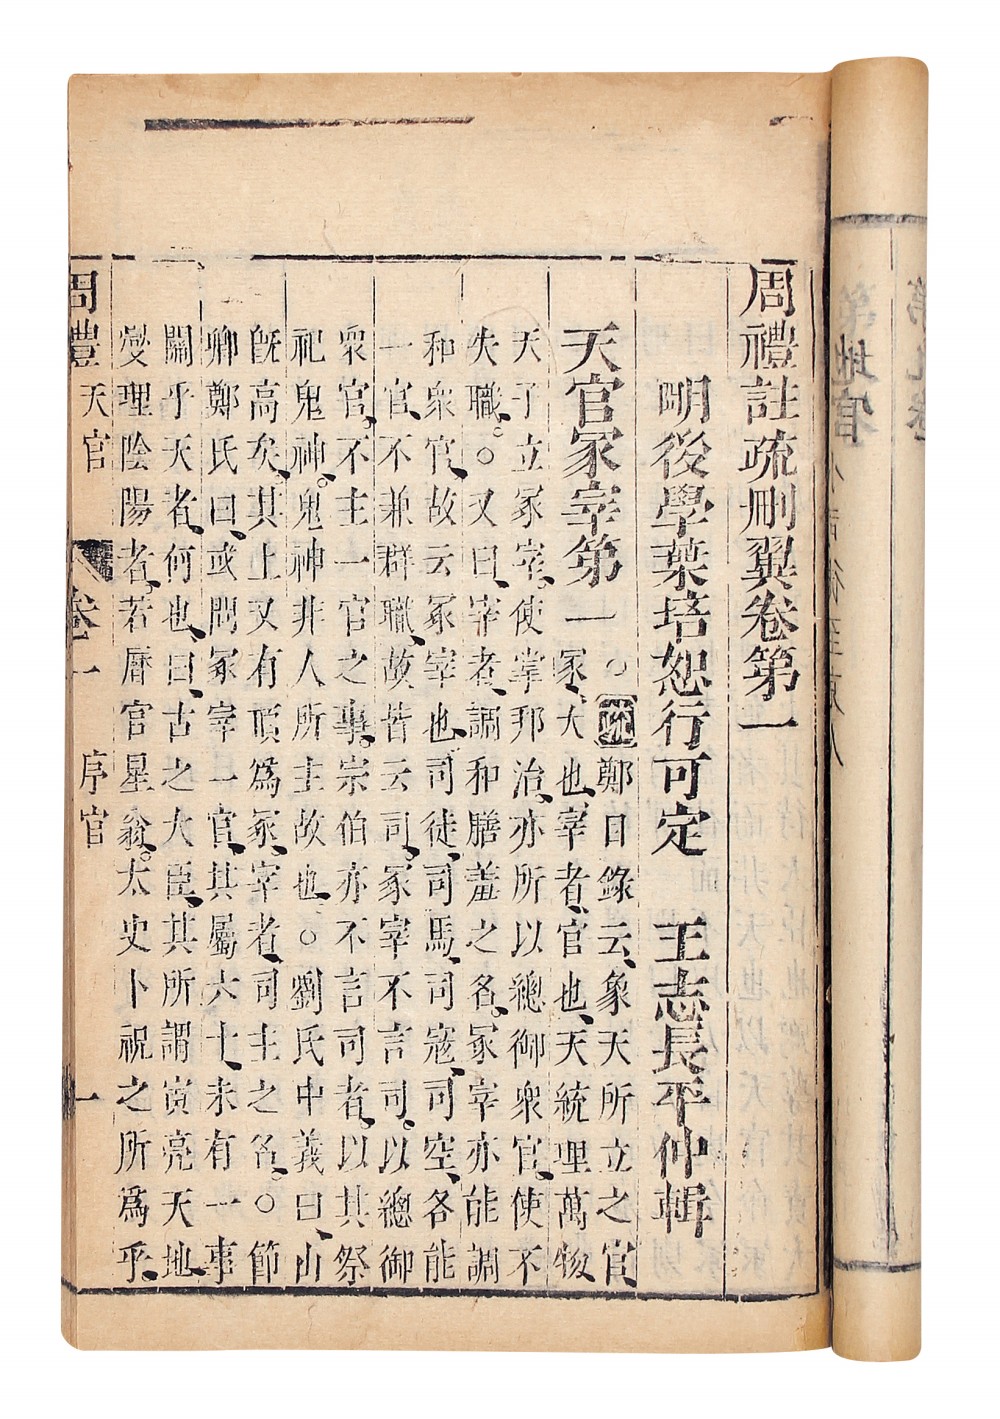 周禮註疏刪翼卷第一
明後學葉培恕行可定　王志長平仲輯
天官冢宰第一
○註鄭目錄云、象天所立之官
冢、大也、宰者、官也、天統理萬物
天子立冢宰、使掌邦治、亦所以總御衆官、使不
失職。○又曰、宰者、調和膳羞之名、冢宰亦能調
和衆官、故云冢宰也、司徒、司馬、司寇、司空、各能
一官、不兼群職、故皆云司。冢宰不言司、以總御
衆官、不主一官之事。宗伯亦不言司者、以其祭
祀鬼神。鬼神非人所主故也。○劉氏中義曰、山
旣高矣、其上又有頂爲冢、宰者、司主之名。○節
卿鄭氏曰、或問冢宰一官、其屬六十、未有一事
關乎天者、何也、曰、古之大臣、其所謂寅亮天地、
燮理陰陽者。若曆官星翁。太史卜祝之所爲乎、
周禮天官　卷一　序官　一